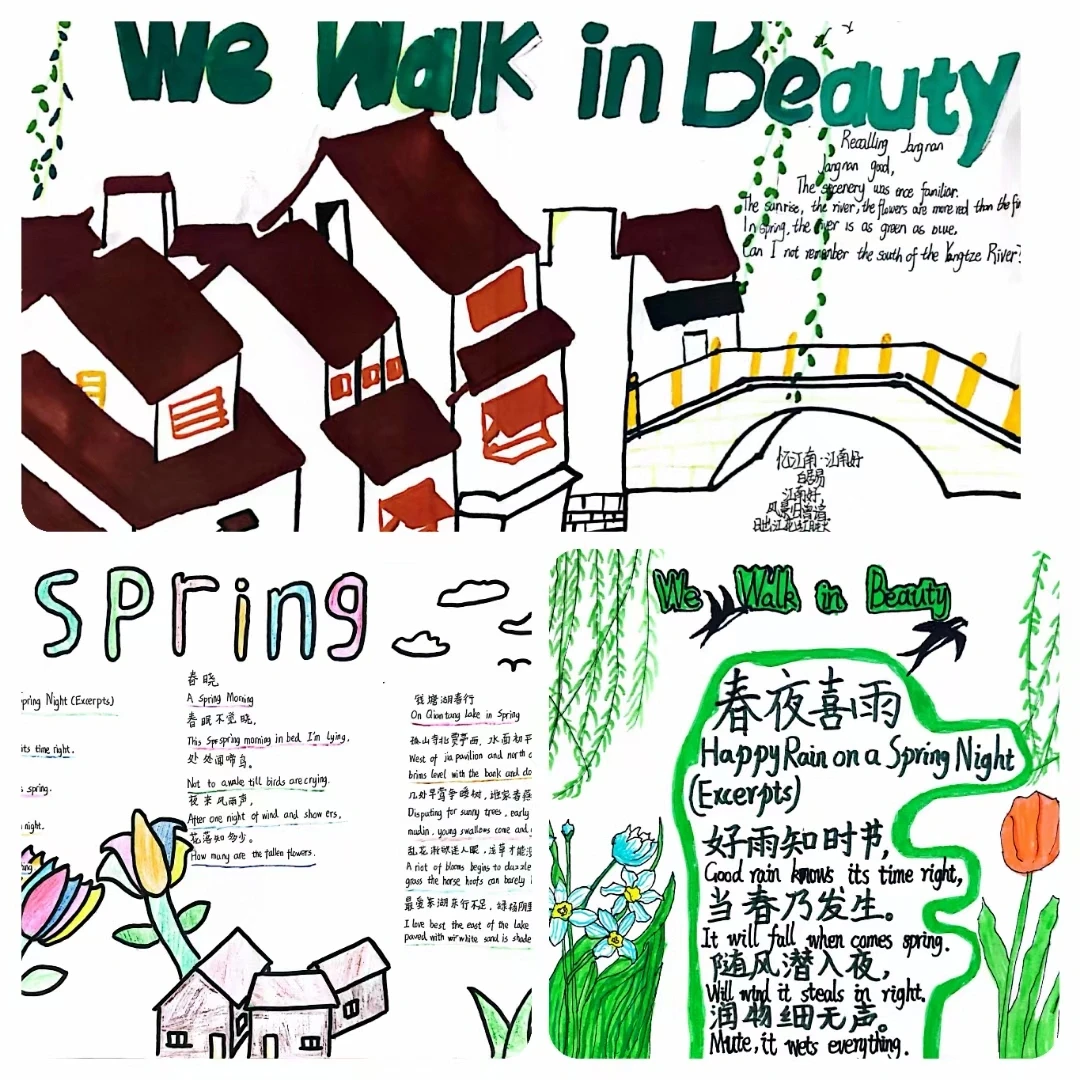 We Walk in Beauty
Recalling Jangnan
Jangnan good,
The scenery was once familiar.
The sunrise, the river, the flowers are more red than the
In spring, the river is as green as blue,
Can I not remember the south of the Yangtze River?
忆江南·江南好
白居易
江南好,
风景旧曾谙
日出江花红胜火
Spring
pring Night (Excerpts)
its time right.
spring.
night.
春晓
A Spring Morning
春眠不觉晓,
This Spespring morning in bed I'm lying,
处处闻啼鸟。
Not to awake till birds are crying.
夜来风雨声,
After one night of wind and showers,
花落知多少。
How many are the fallen flowers.
钱塘湖春行
On Qiantang Lake in Spring
孤山寺北贾亭西,水面初平
West of jia pavilion and north o
brims level with the bank and do
几处早莺争暖树,谁家春燕
Disputing for sunny trees, early
madin, young swallows come and
乱花渐欲迷人眼,浅草才能没
A riot of blooms begins to dazzle
grass the horse hoofs can barely
最爱东湖东行不足,绿杨阴里
I love best the east of the lake
paved with white sand is shade
We Walk in Beauty
春夜喜雨
Happy Rain on a Spring Night
(Excerpts)
好雨知时节,
Good rain knows its time right,
当春乃发生。
It will fall when comes spring.
随风潜入夜,
Will wind it steals in right.
润物细无声。
Mute, it wets everything.